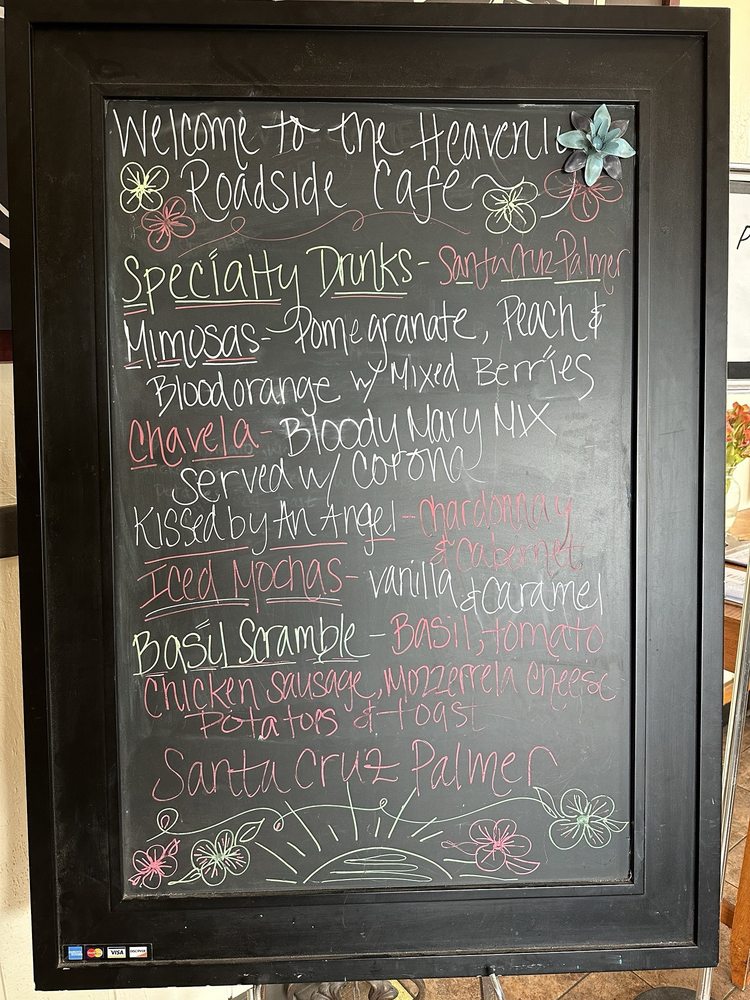 Welcome to the Heavenly
Roadside Cafe
Specialty Drinks - Santa Cruz Palmer
Mimosas - Pomegranate, Peach &
Bloodorange w/ Mixed Berries
Chavela - Bloody Mary Mix
Served w/ Corona
Kissed by An Angel - Chardonnay
& Cabernet
Iced Mochas - vanilla & Caramel
Basil Scramble - Basil, tomato
Chicken Sausage, Mozzerrela Cheese
Potatoes & toast
Santa Cruz Palmer
VISA DISCOVER